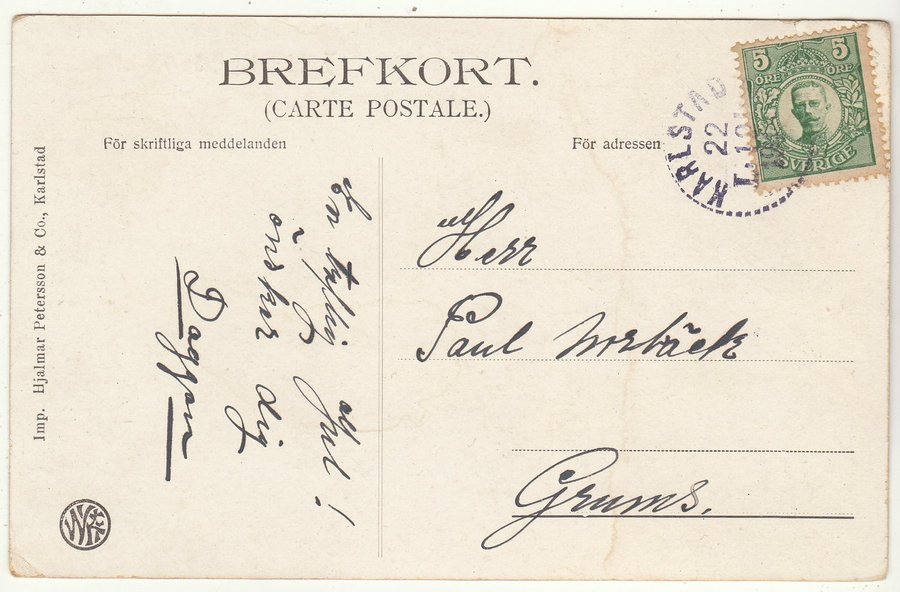 BREFKORT.
(CARTE POSTALE.)
För skriftliga meddelanden
För adressen
5 5
ÖRE ÖRE
SVERIGE
KARLSTAD
22
Imp. Hjalmar Petersson & Co., Karlstad
En Jul!
önskar dig
Daggan
Herr
Paul
Grums.